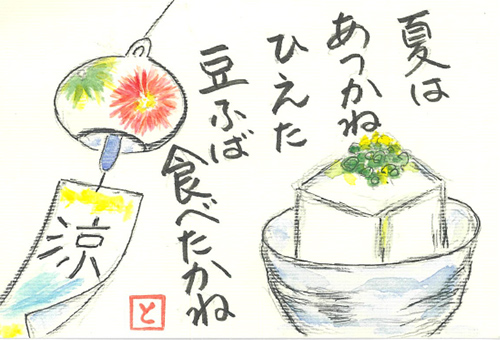 夏は
あつかね
ひえた
豆ふば
食べたかね
涼
と